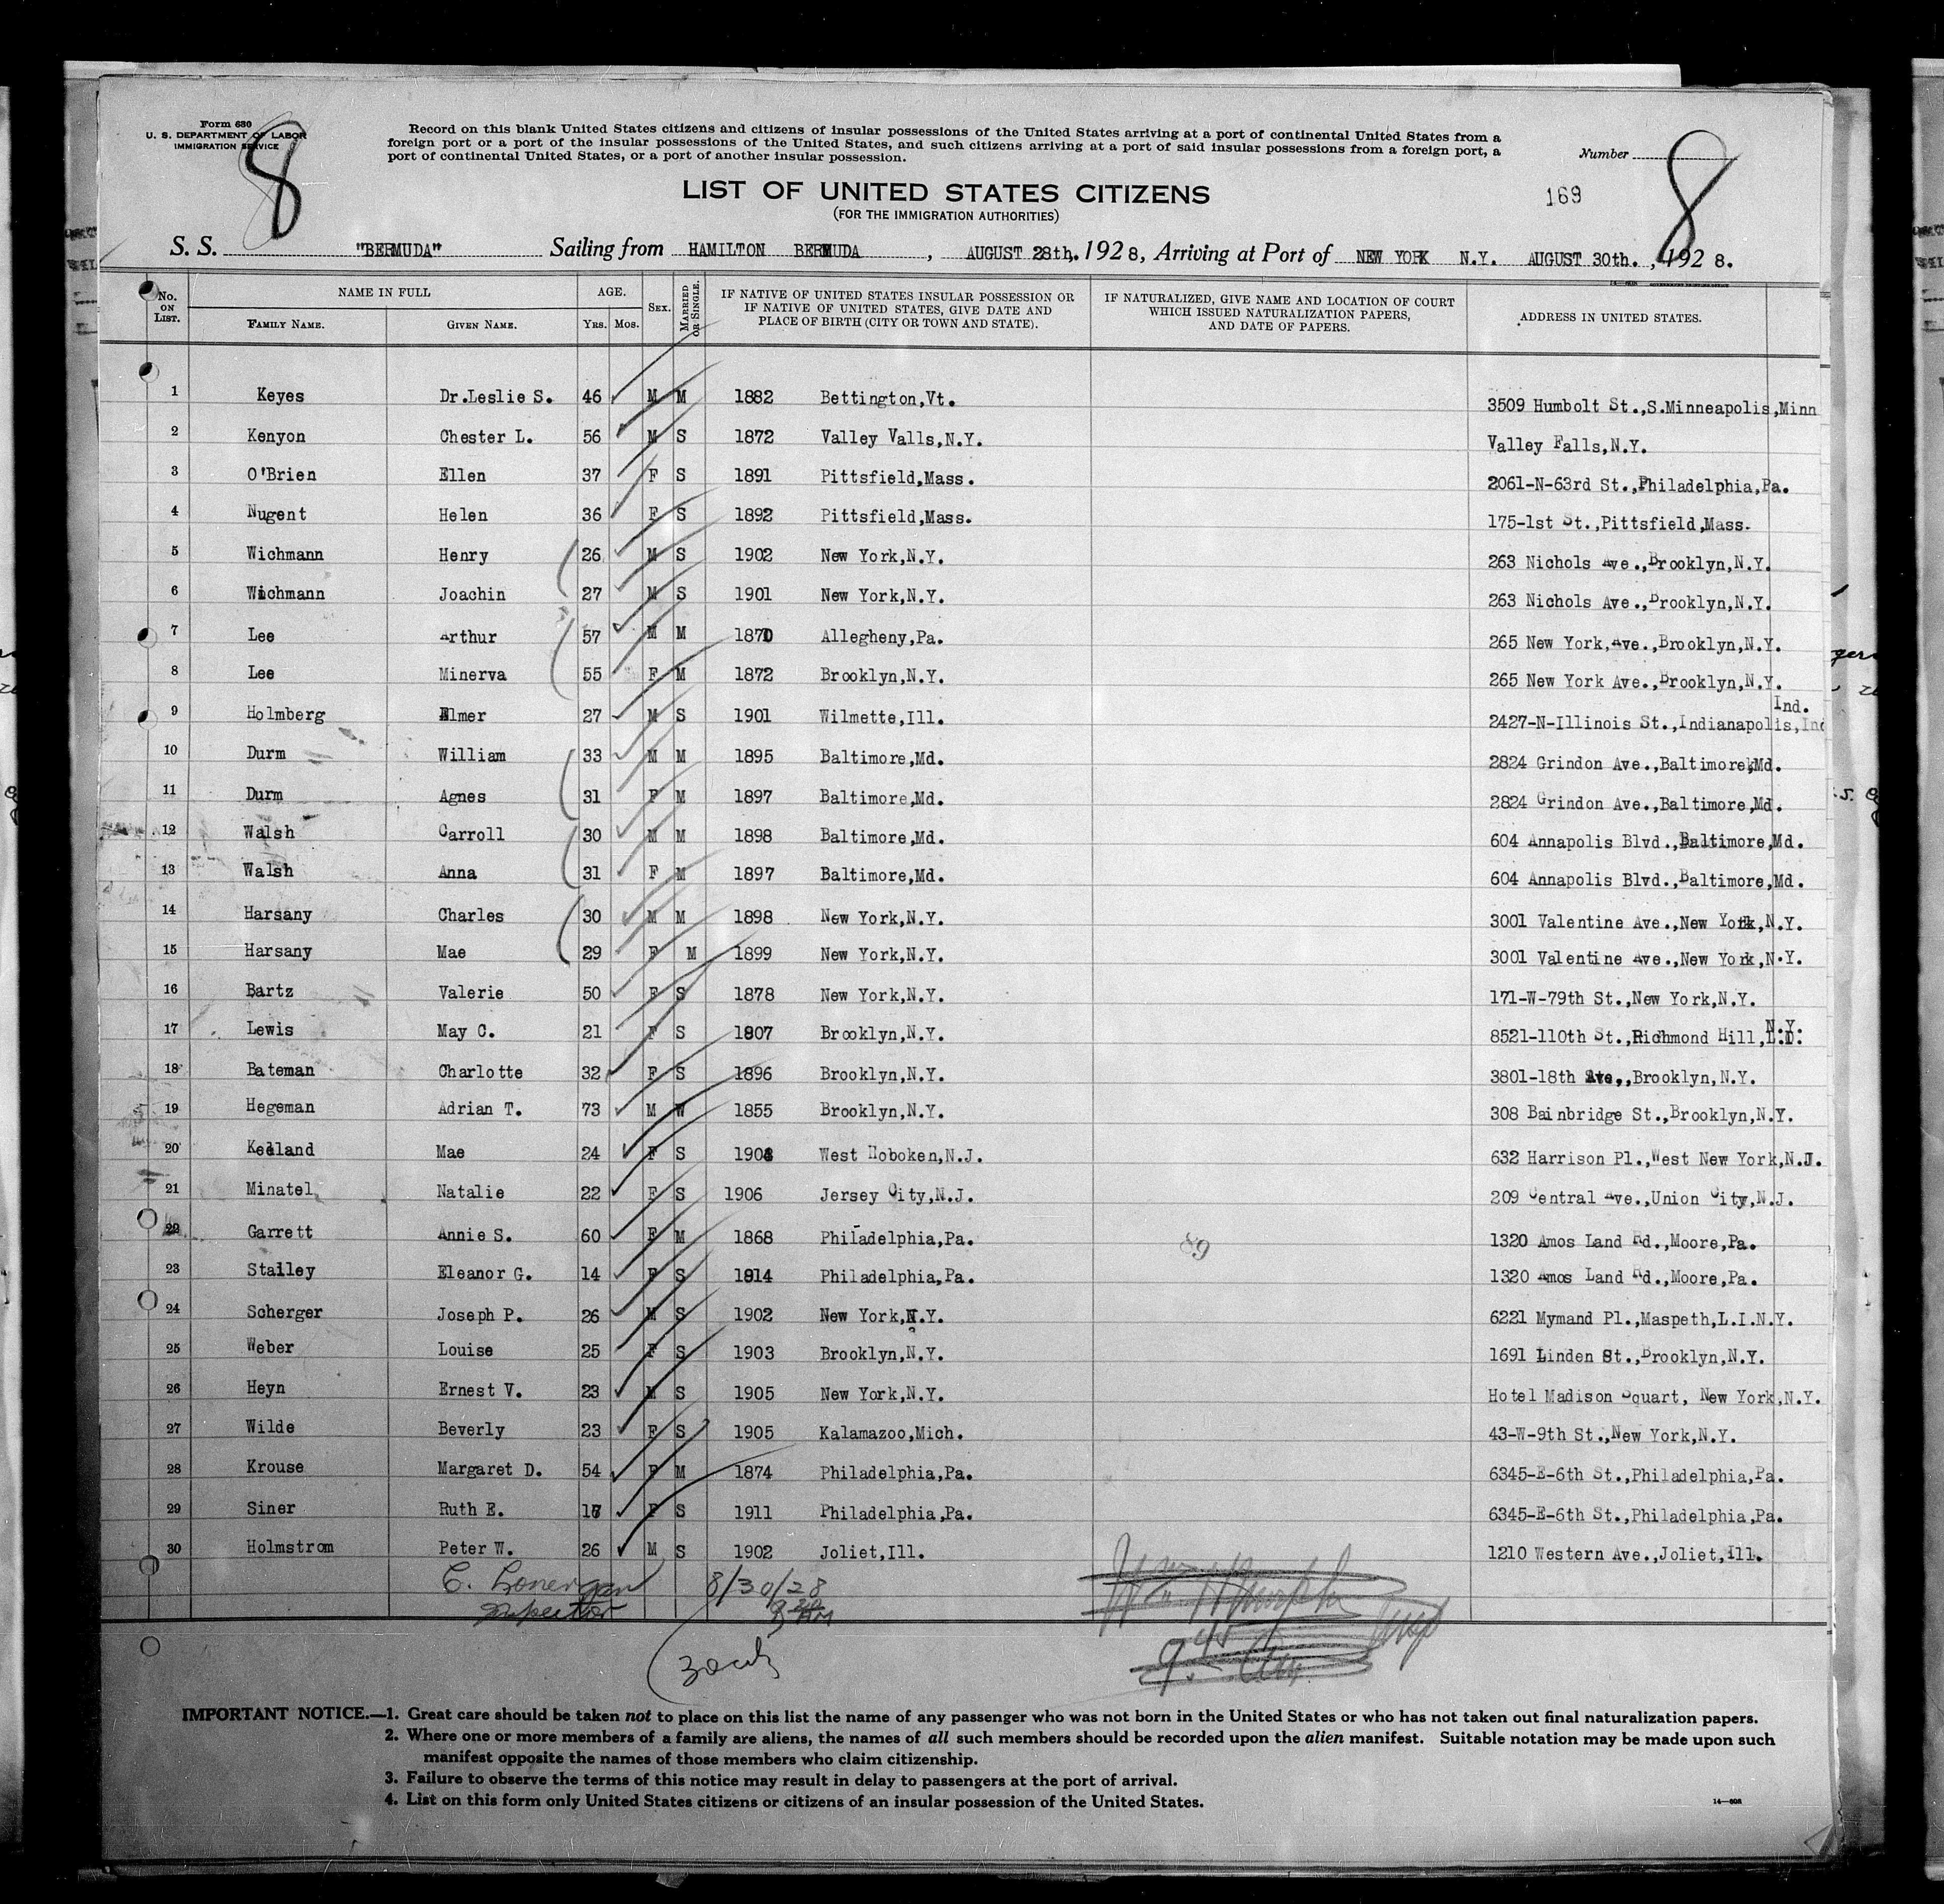 Form 630
U. S. DEPARTMENT OF LABOR
IMMIGRATION SERVICE
8
Record on this blank United States citizens and citizens of insular possessions of the United States arriving at a port of continental United States from a
foreign port or a port of the insular possessions of the United States, and such citizens arriving at a port of said insular possessions from a foreign port, a
port of continental United States, or a port of another insular possession.
Number
8
LIST OF UNITED STATES CITIZENS
169
(FOR THE IMMIGRATION AUTHORITIES)
S. S. "BERMUDA" Sailing from HAMILTON BERMUDA , AUGUST 28th. 1928, Arriving at Port of NEW YORK N.Y. AUGUST 30th. , 1928.
No. ON LIST. NAME IN FULL FAMILY NAME. GIVEN NAME. AGE. YRS. MOS. SEX. MARRIED OR SINGLE. IF NATIVE OF UNITED STATES INSULAR POSSESSION OR IF NATIVE OF UNITED STATES, GIVE DATE AND PLACE OF BIRTH (CITY OR TOWN AND STATE). IF NATURALIZED, GIVE NAME AND LOCATION OF COURT WHICH ISSUED NATURALIZATION PAPERS, AND DATE OF PAPERS. ADDRESS IN UNITED STATES.
1 Keyes Dr.Leslie S. 46 M M 1882 Bettington,Vt. 3509 Humbolt St.,S.Minneapolis,Minn
2 Kenyon Chester L. 56 M S 1872 Valley Valls,N.Y. Valley Falls,N.Y.
3 O'Brien Ellen 37 F S 1891 Pittsfield,Mass. 2061-N-63rd St.,Philadelphia,Pa.
4 Nugent Helen 36 F S 1892 Pittsfield,Mass. 175-1st St.,Pittsfield,Mass.
5 Wichmann Henry 26 M S 1902 New York,N.Y. 263 Nichols Ave.,Brooklyn,N.Y.
6 Wichmann Joachin 27 M S 1901 New York,N.Y. 263 Nichols Ave.,Brooklyn,N.Y.
7 Lee Arthur 57 M M 1870 Allegheny,Pa. 265 New York,Ave.,Brooklyn,N.Y.
8 Lee Minerva 55 F M 1872 Brooklyn,N.Y. 265 New York Ave.,Brooklyn,N.Y.
9 Holmberg Elmer 27 M S 1901 Wilmette,Ill. 2427-N-Illinois St.,Indianapolis,Ind Ind.
10 Durm William 33 M M 1895 Baltimore,Md. 2824 Grindon Ave.,Baltimore,Md.
11 Durm Agnes 31 F M 1897 Baltimore,Md. 2824 Grindon Ave.,Baltimore,Md.
12 Walsh Carroll 30 M M 1898 Baltimore,Md. 604 Annapolis Blvd.,Baltimore,Md.
13 Walsh Anna 31 F M 1897 Baltimore,Md. 604 Annapolis Blvd.,Baltimore,Md.
14 Harsany Charles 30 M M 1898 New York,N.Y. 3001 Valentine Ave.,New York,N.Y.
15 Harsany Mae 29 F M 1899 New York,N.Y. 3001 Valentine Ave.,New York,N.Y.
16 Bartz Valerie 50 F S 1878 New York,N.Y. 171-W-79th St.,New York,N.Y.
17 Lewis May C. 21 F S 1907 Brooklyn,N.Y. 8521-110th St.,Richmond Hill, N.Y.
18 Bateman Charlotte 32 F S 1896 Brooklyn,N.Y. 3801-18th Ave,,Brooklyn,N.Y.
19 Hegeman Adrian T. 73 M W 1855 Brooklyn,N.Y. 308 Bainbridge St.,Brooklyn,N.Y.
20 Kelland Mae 24 F S 1904 West Hoboken,N.J. 632 Harrison Pl.,West New York,N.J.
21 Minatel Natalie 22 F S 1906 Jersey City,N.J. 209 Central Ave.,Union City,N.J.
22 Garrett Annie S. 60 F M 1868 Philadelphia,Pa. 89 1320 Amos Land Rd.,Moore,Pa.
23 Stailey Eleanor G. 14 F S 1914 Philadelphia,Pa. 1320 Amos Land Rd.,Moore,Pa.
24 Scherger Joseph P. 26 M S 1902 New York,N.Y. 6221 Mymand Pl.,Maspeth,L.I.N.Y.
25 Weber Louise 25 F S 1903 Brooklyn,N.Y. 1691 Linden St.,Brooklyn,N.Y.
26 Heyn Ernest V. 23 M S 1905 New York,N.Y. Hotel Madison Squart, New York,N.Y.
27 Wilde Beverly 23 F S 1905 Kalamazoo,Mich. 43-W-9th St.,New York,N.Y.
28 Krouse Margaret D. 54 F M 1874 Philadelphia,Pa. 6345-E-6th St.,Philadelphia,Pa.
29 Siner Ruth E. 17 F S 1911 Philadelphia,Pa. 6345-E-6th St.,Philadelphia,Pa.
30 Holmstrom Peter W. 26 M S 1902 Joliet,Ill. 1210 Western Ave.,Joliet,Ill.
C. Lonergan 8/30/28
Inspector
IMPORTANT NOTICE.—1. Great care should be taken not to place on this list the name of any passenger who was not born in the United States or who has not taken out final naturalization papers.
2. Where one or more members of a family are aliens, the names of all such members should be recorded upon the alien manifest. Suitable notation may be made upon such
manifest opposite the names of those members who claim citizenship.
3. Failure to observe the terms of this notice may result in delay to passengers at the port of arrival.
4. List on this form only United States citizens or citizens of an insular possession of the United States.